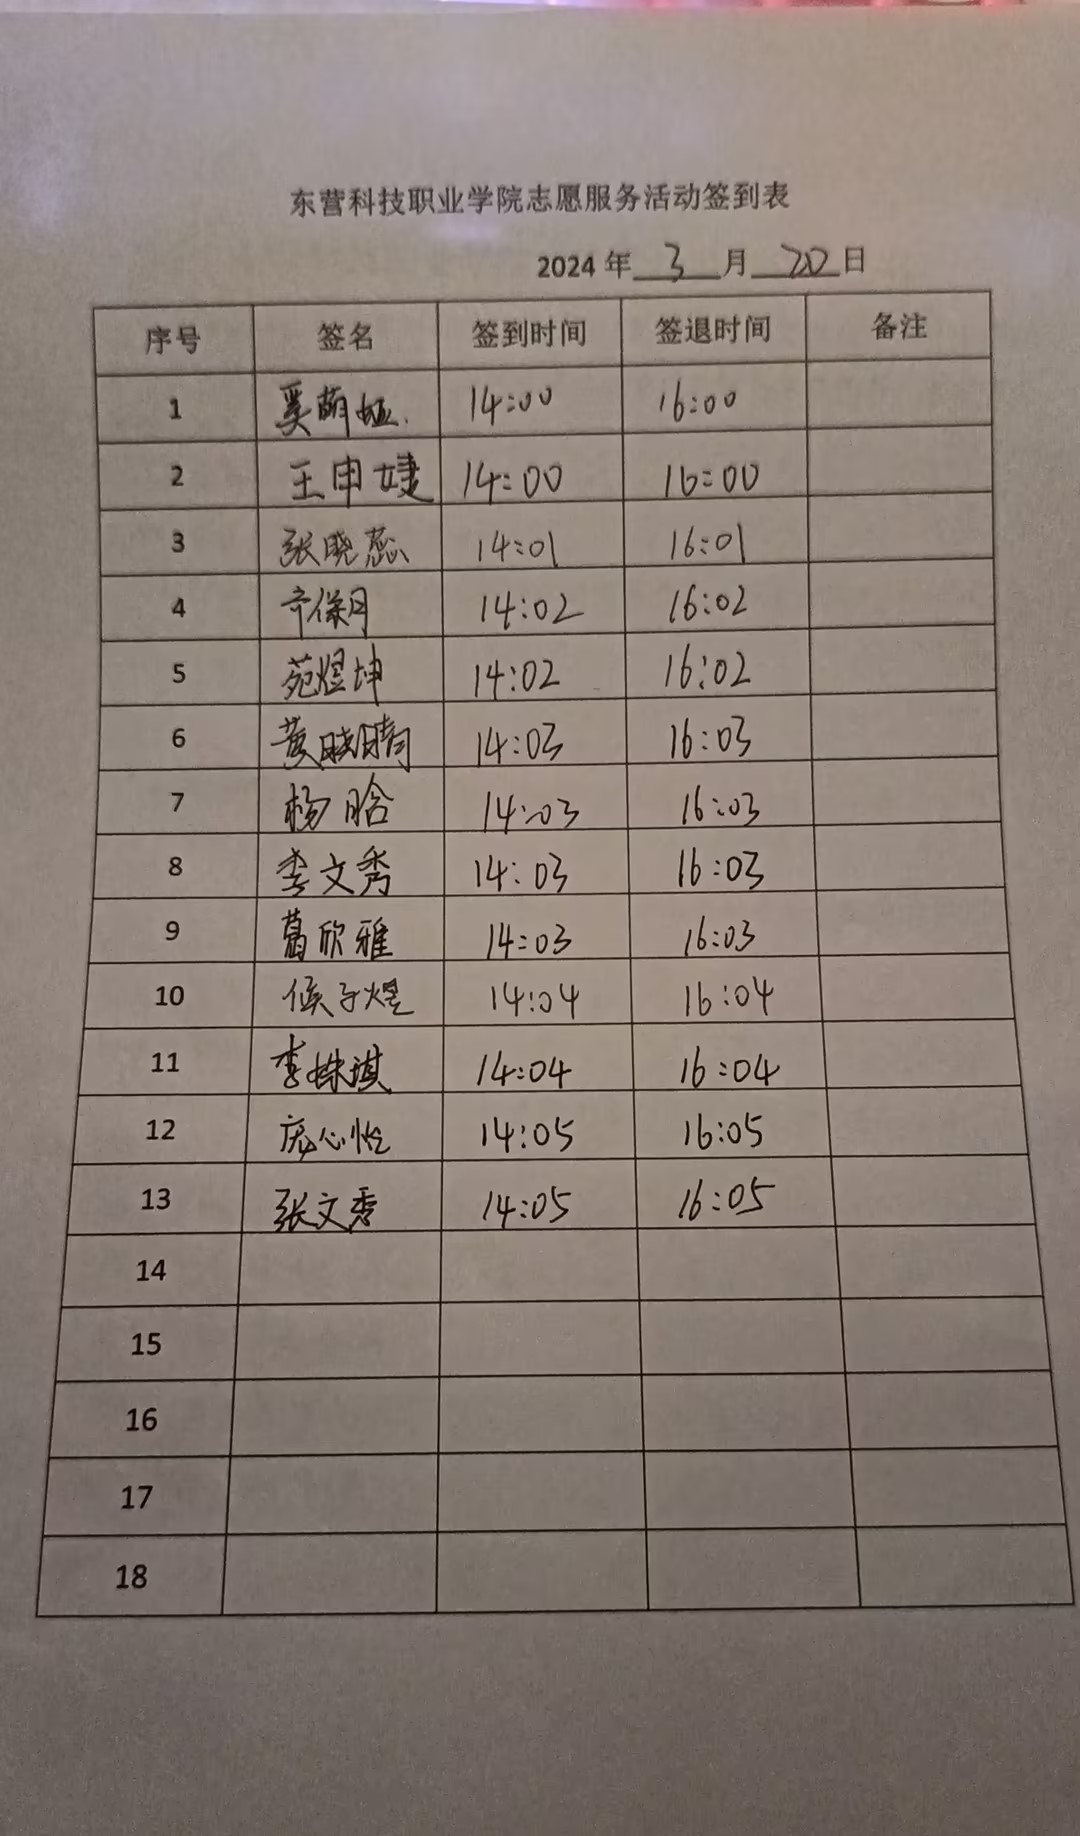 东营科技职业学院志愿服务活动签到表
2024 年 3 月 20 日
序号 签名 签到时间 签退时间 备注
1 奚萌娅 14:00 16:00
2 王申婕 14:00 16:00
3 张晓蕊 14:01 16:01
4 齐保月 14:02 16:02
5 苑煜坤 14:02 16:02
6 黄晓晴 14:03 16:03
7 杨晗 14:03 16:03
8 李文秀 14:03 16:03
9 葛欣雅 14:03 16:03
10 候子煜 14:04 16:04
11 李姝琪 14:04 16:04
12 庞心怡 14:05 16:05
13 张文秀 14:05 16:05
14
15
16
17
18